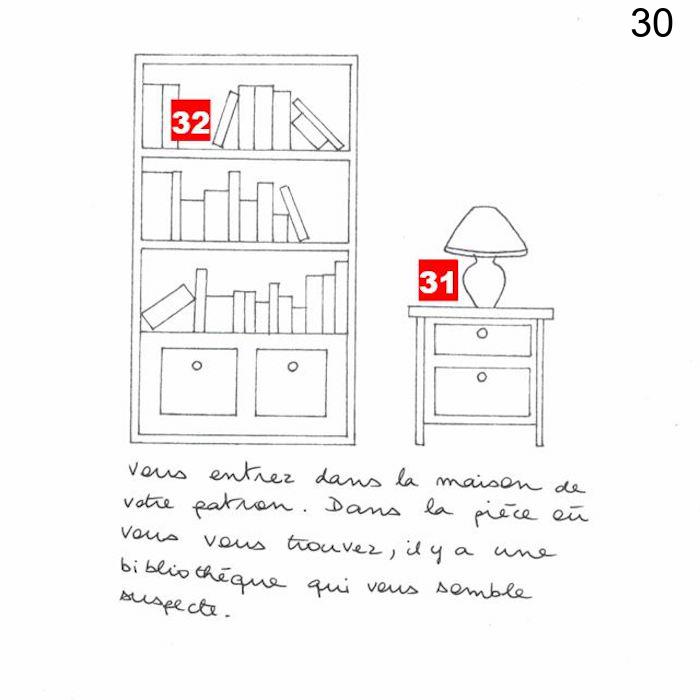 30
32
31
vous entrez dans la maison de
votre patron. Dans la pièce où
vous vous trouvez, il y a une
bibliothéque qui vous semble
suspecte.